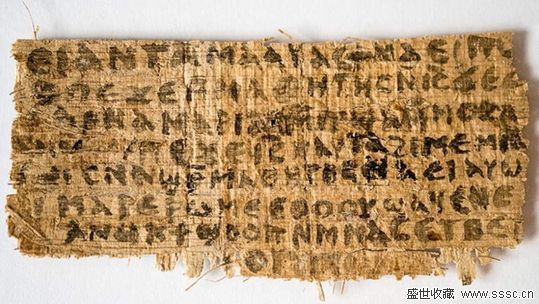 ⲉⲓ ⲁⲛ ⲧⲁⲙⲁⲁⲩ ⲁⲥϯ ⲛⲁⲉⲓ ⲡⲱ
ⲡⲉϫⲉ ⲙⲙⲁⲑⲏⲧⲏⲥ ⲛⲓⲥ ϫⲉ ⲥ
ⲁⲣⲛⲁ ⲙⲁⲣⲓⲁⲙ ⲙⲡϣⲁ ⲙⲙⲟⲥ ⲁ
ⲡⲉϫⲉ ⲓⲥ ⲛⲁⲩ ⲧⲁϩⲓⲙⲉ ⲙⲛ
ⲥⲛⲁϣⲣⲙⲁⲑⲏⲧⲏⲥ ⲛⲁⲉⲓ ⲁⲩⲱ
ⲓ ⲙⲁⲣⲉⲣⲱⲙⲉ ⲉⲑⲟⲟⲩ ϣⲁϥⲉ ⲛⲉ
ⲁⲛⲟⲕ ϯϣⲟⲟⲡ ⲛⲙⲙⲁⲥ ⲉⲧⲃⲉ ⲡ
盛世收藏 www.sssc.cn